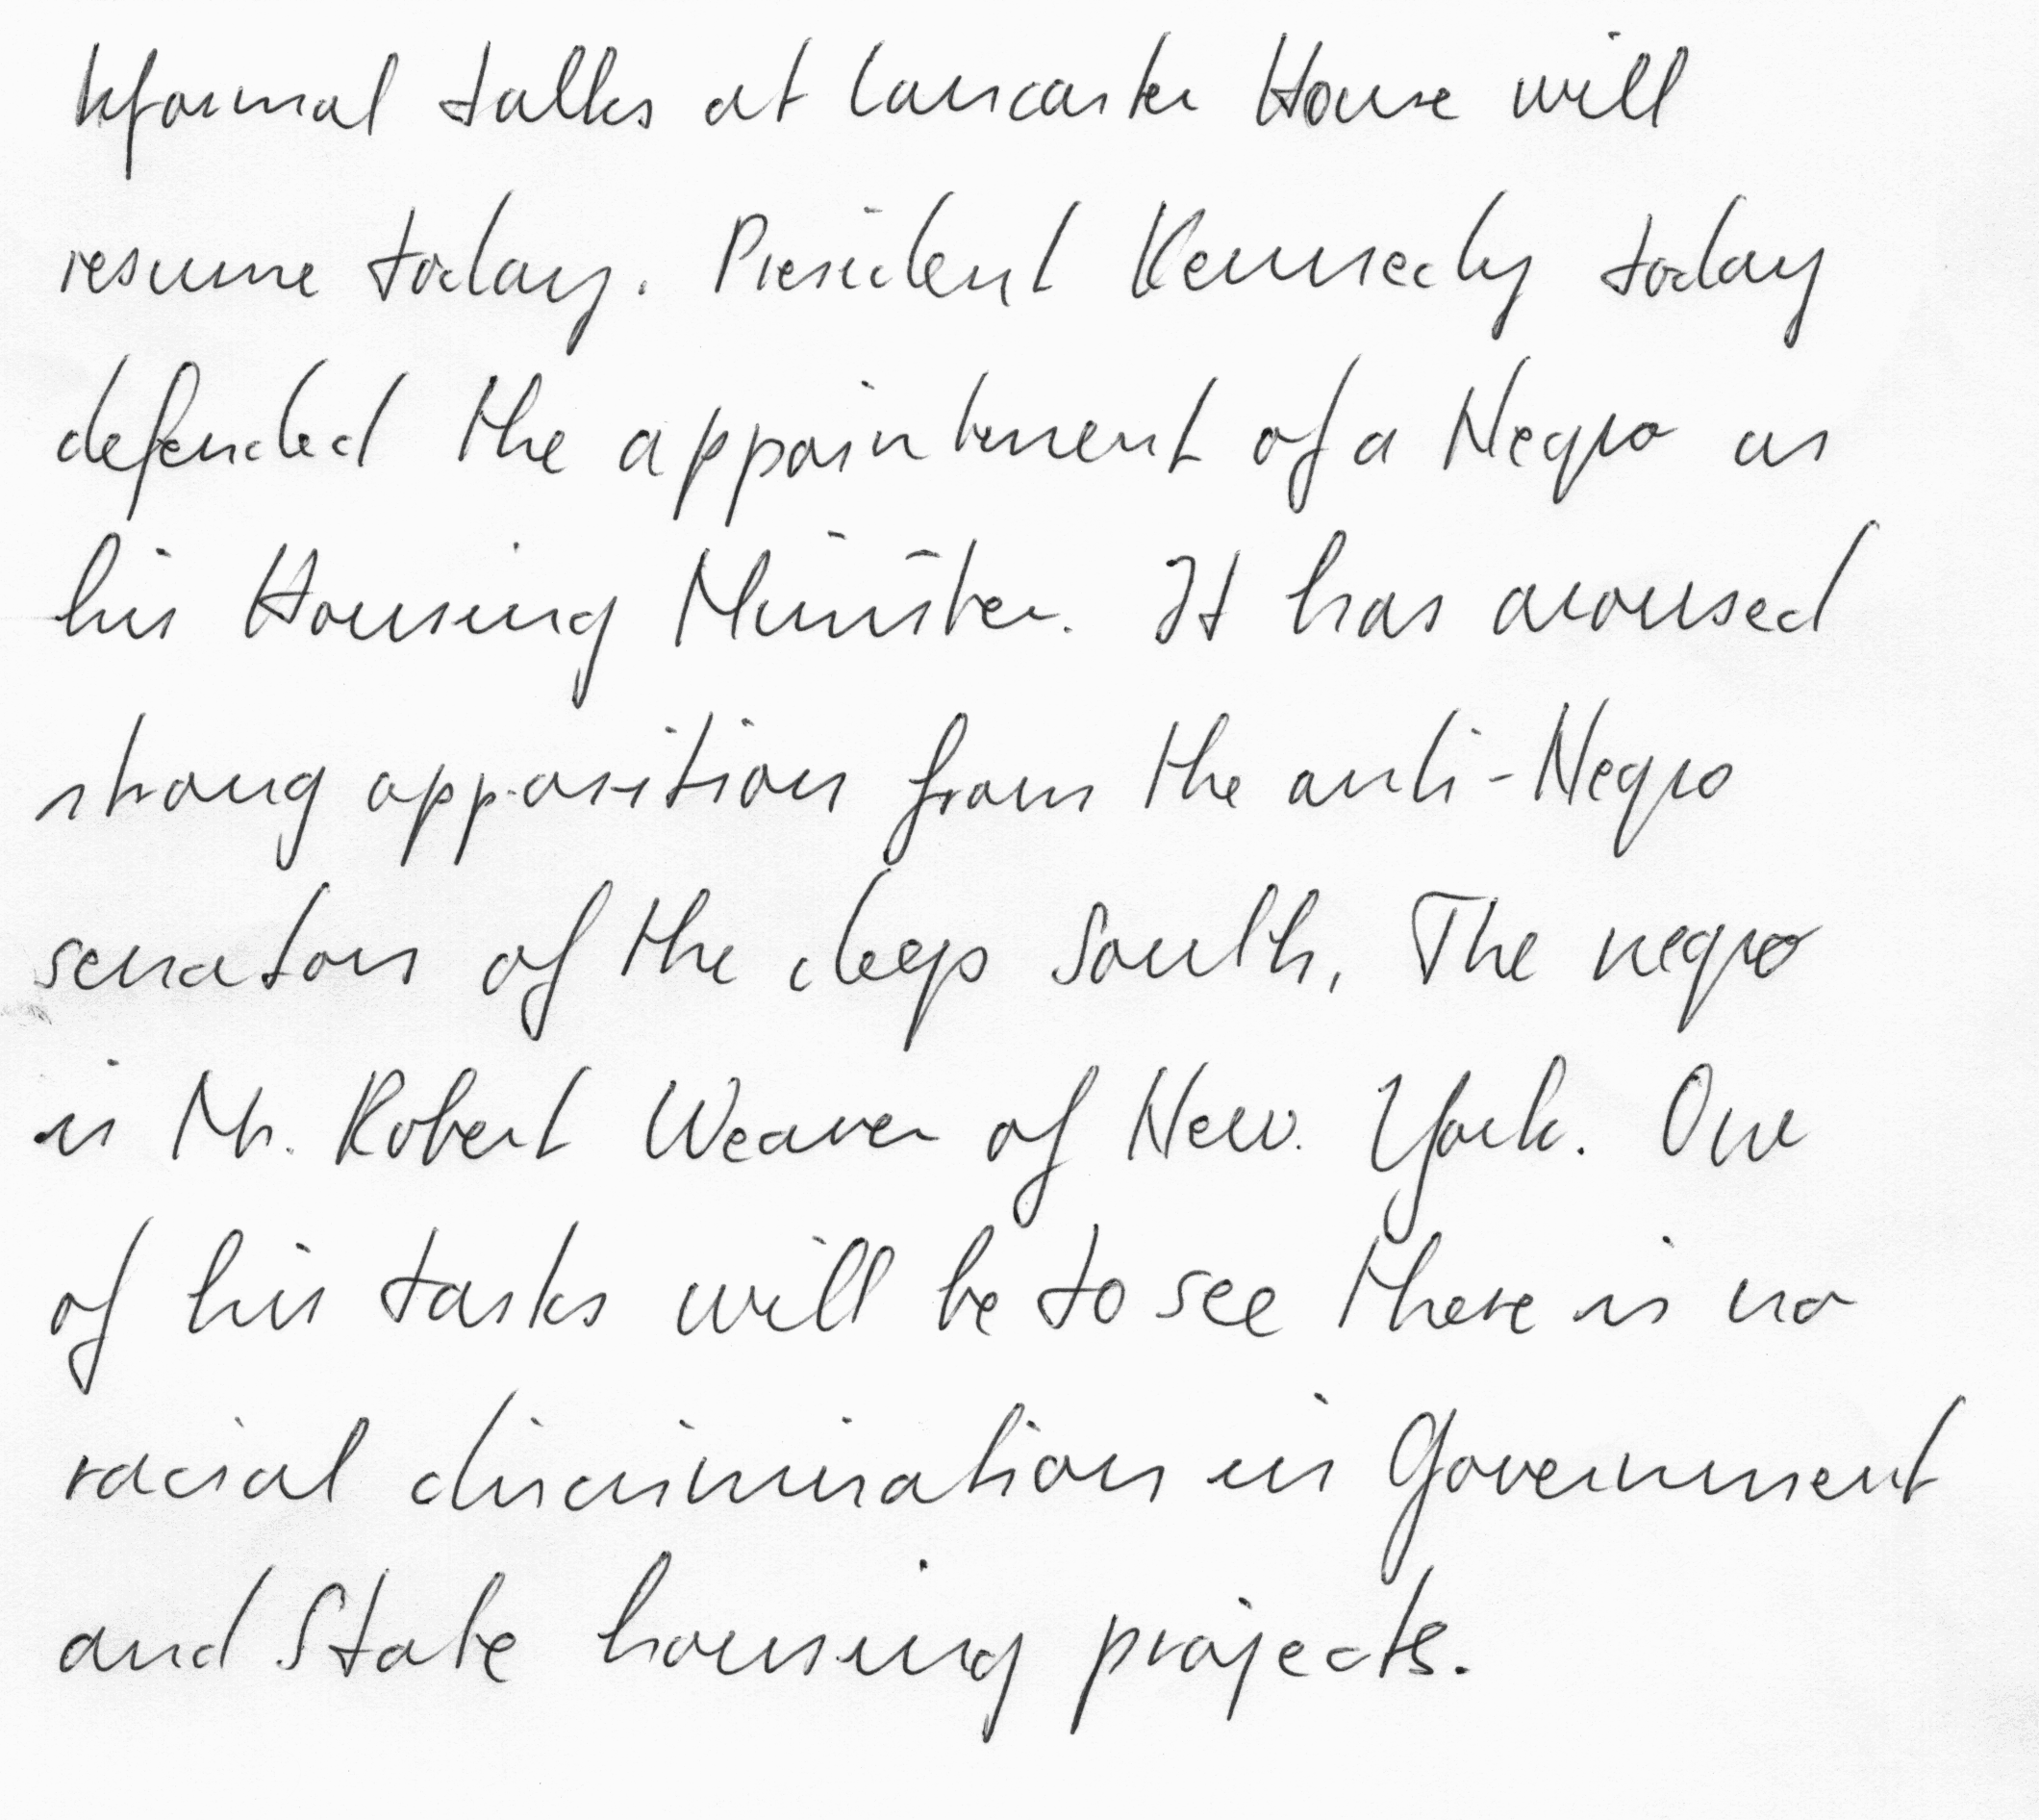 Informal talks at Lancaster House will
resume today. President Kennedy today
defended the appointment of a Negro as
his Housing Minister. It has aroused
strong opposition from the anti-Negro
senators of the deep South, The negro
is Mr. Robert Weaver of New York. One
of his tasks will be to see there is no
racial discrimination in Government
and State housing projects.